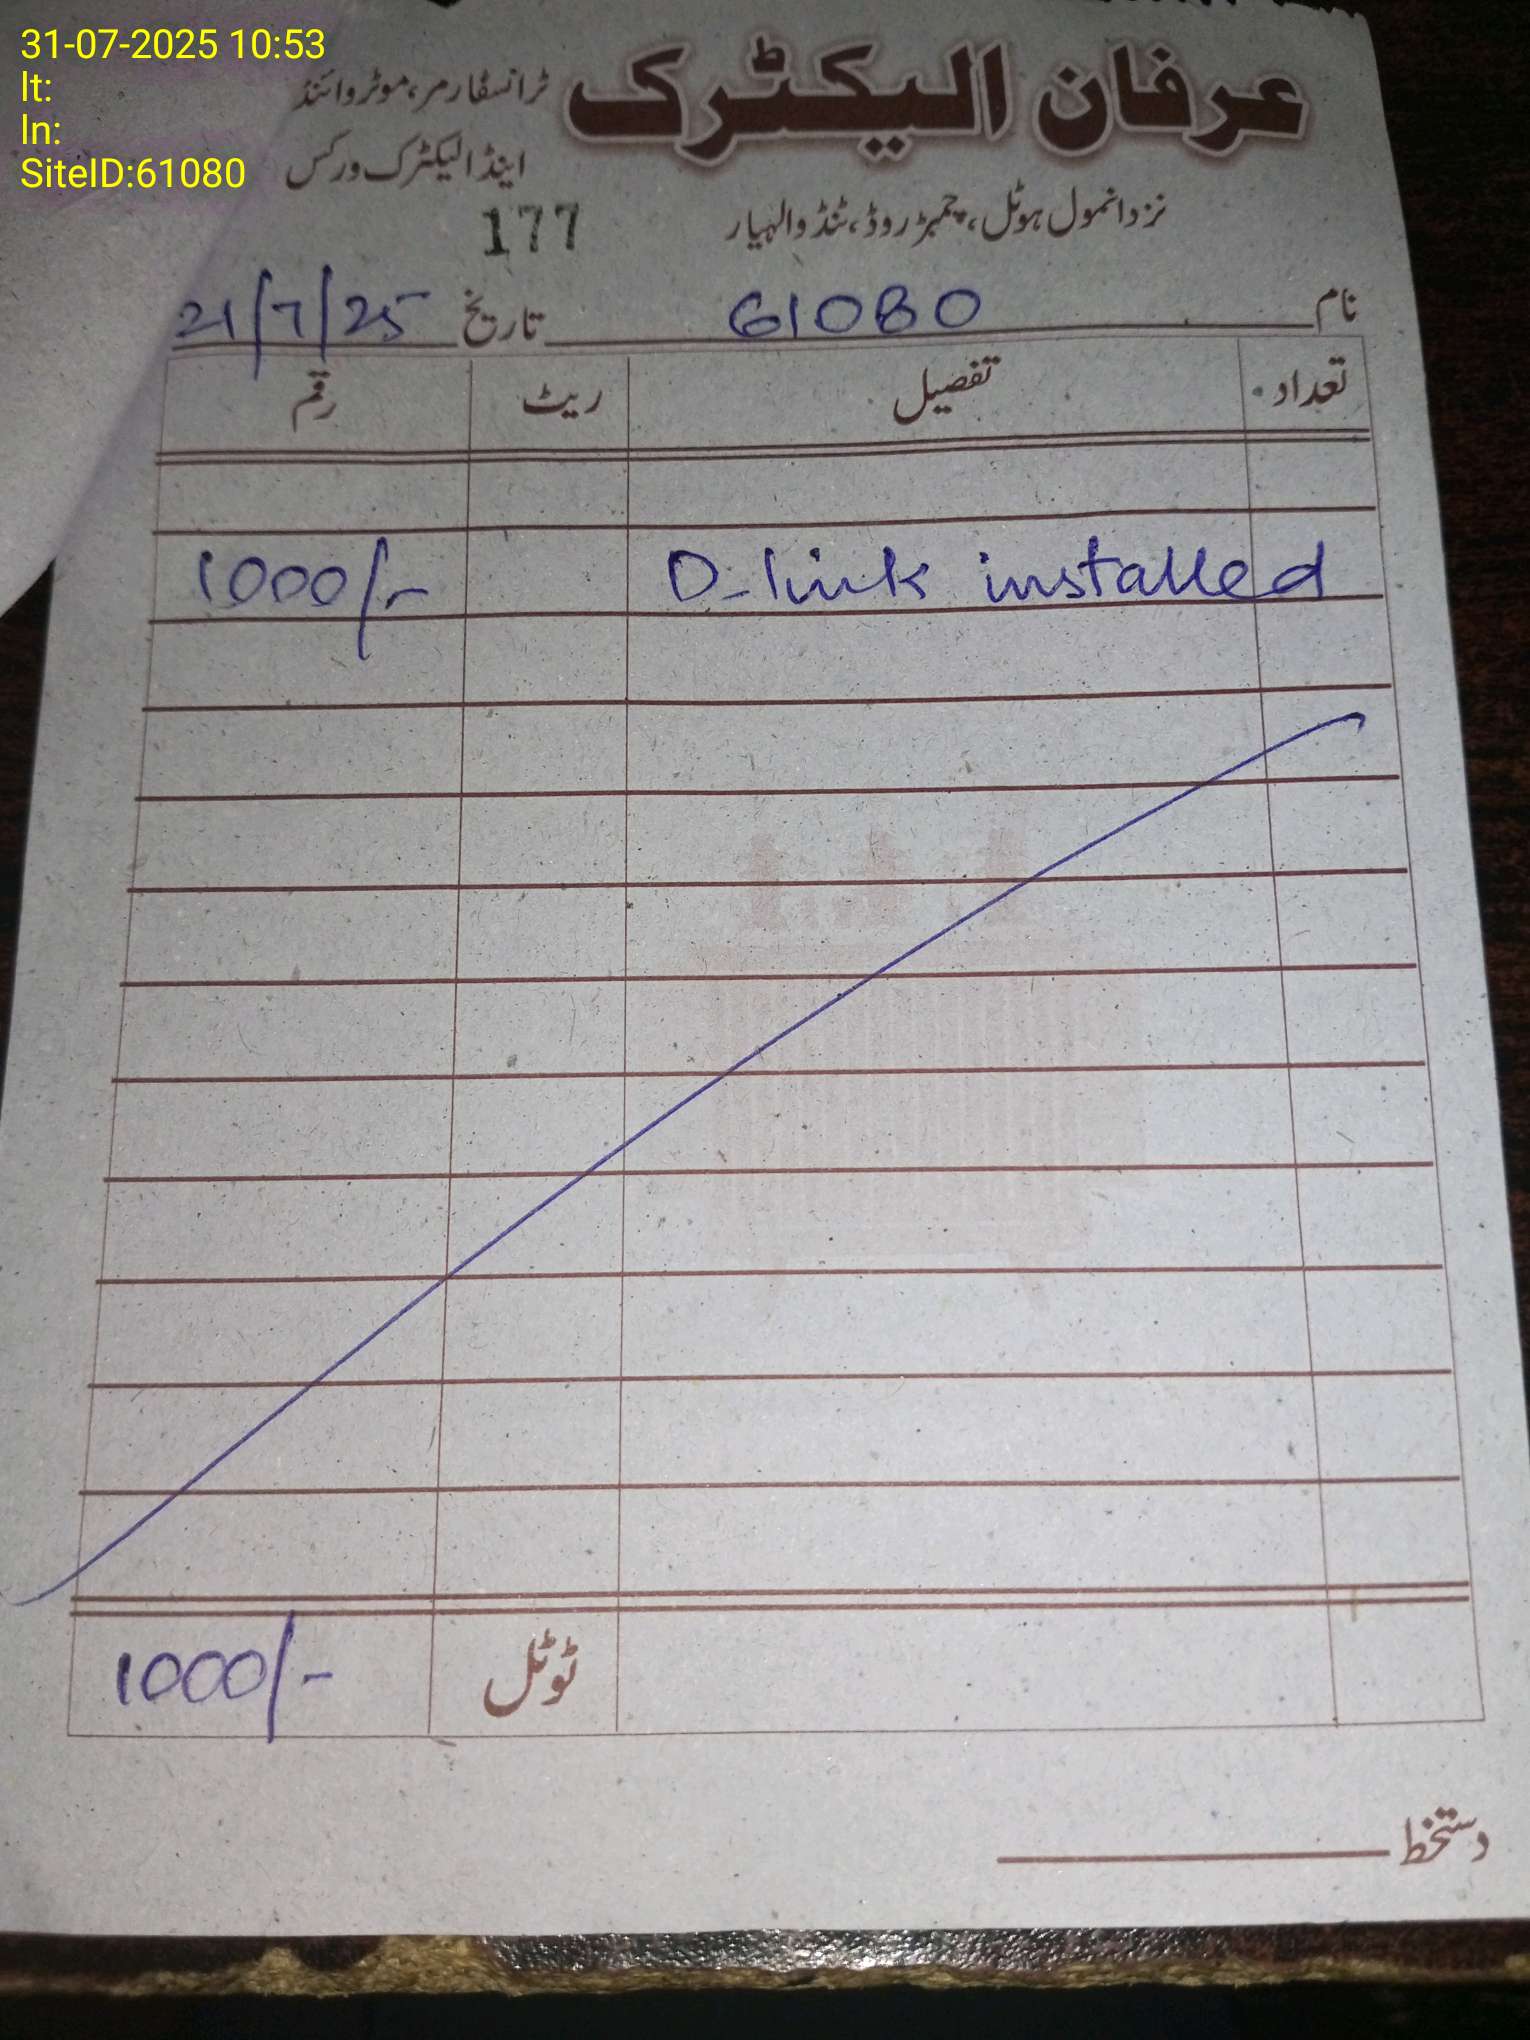 31-07-2025 10:53
lt:
ln:
SiteID:61080
عرفان الیکٹرک
ٹرانسفارمر، موٹروائنڈ
اینڈ الیکٹرک ورکس
نزد انمول ہوٹل، چمبڑ روڈ، ٹنڈوالہیار
177
نام 61080 تاریخ 21/7/25
تعداد تفصیل ریٹ رقم
D-link installed 1000/-
ٹوٹل 1000/-
دستخط